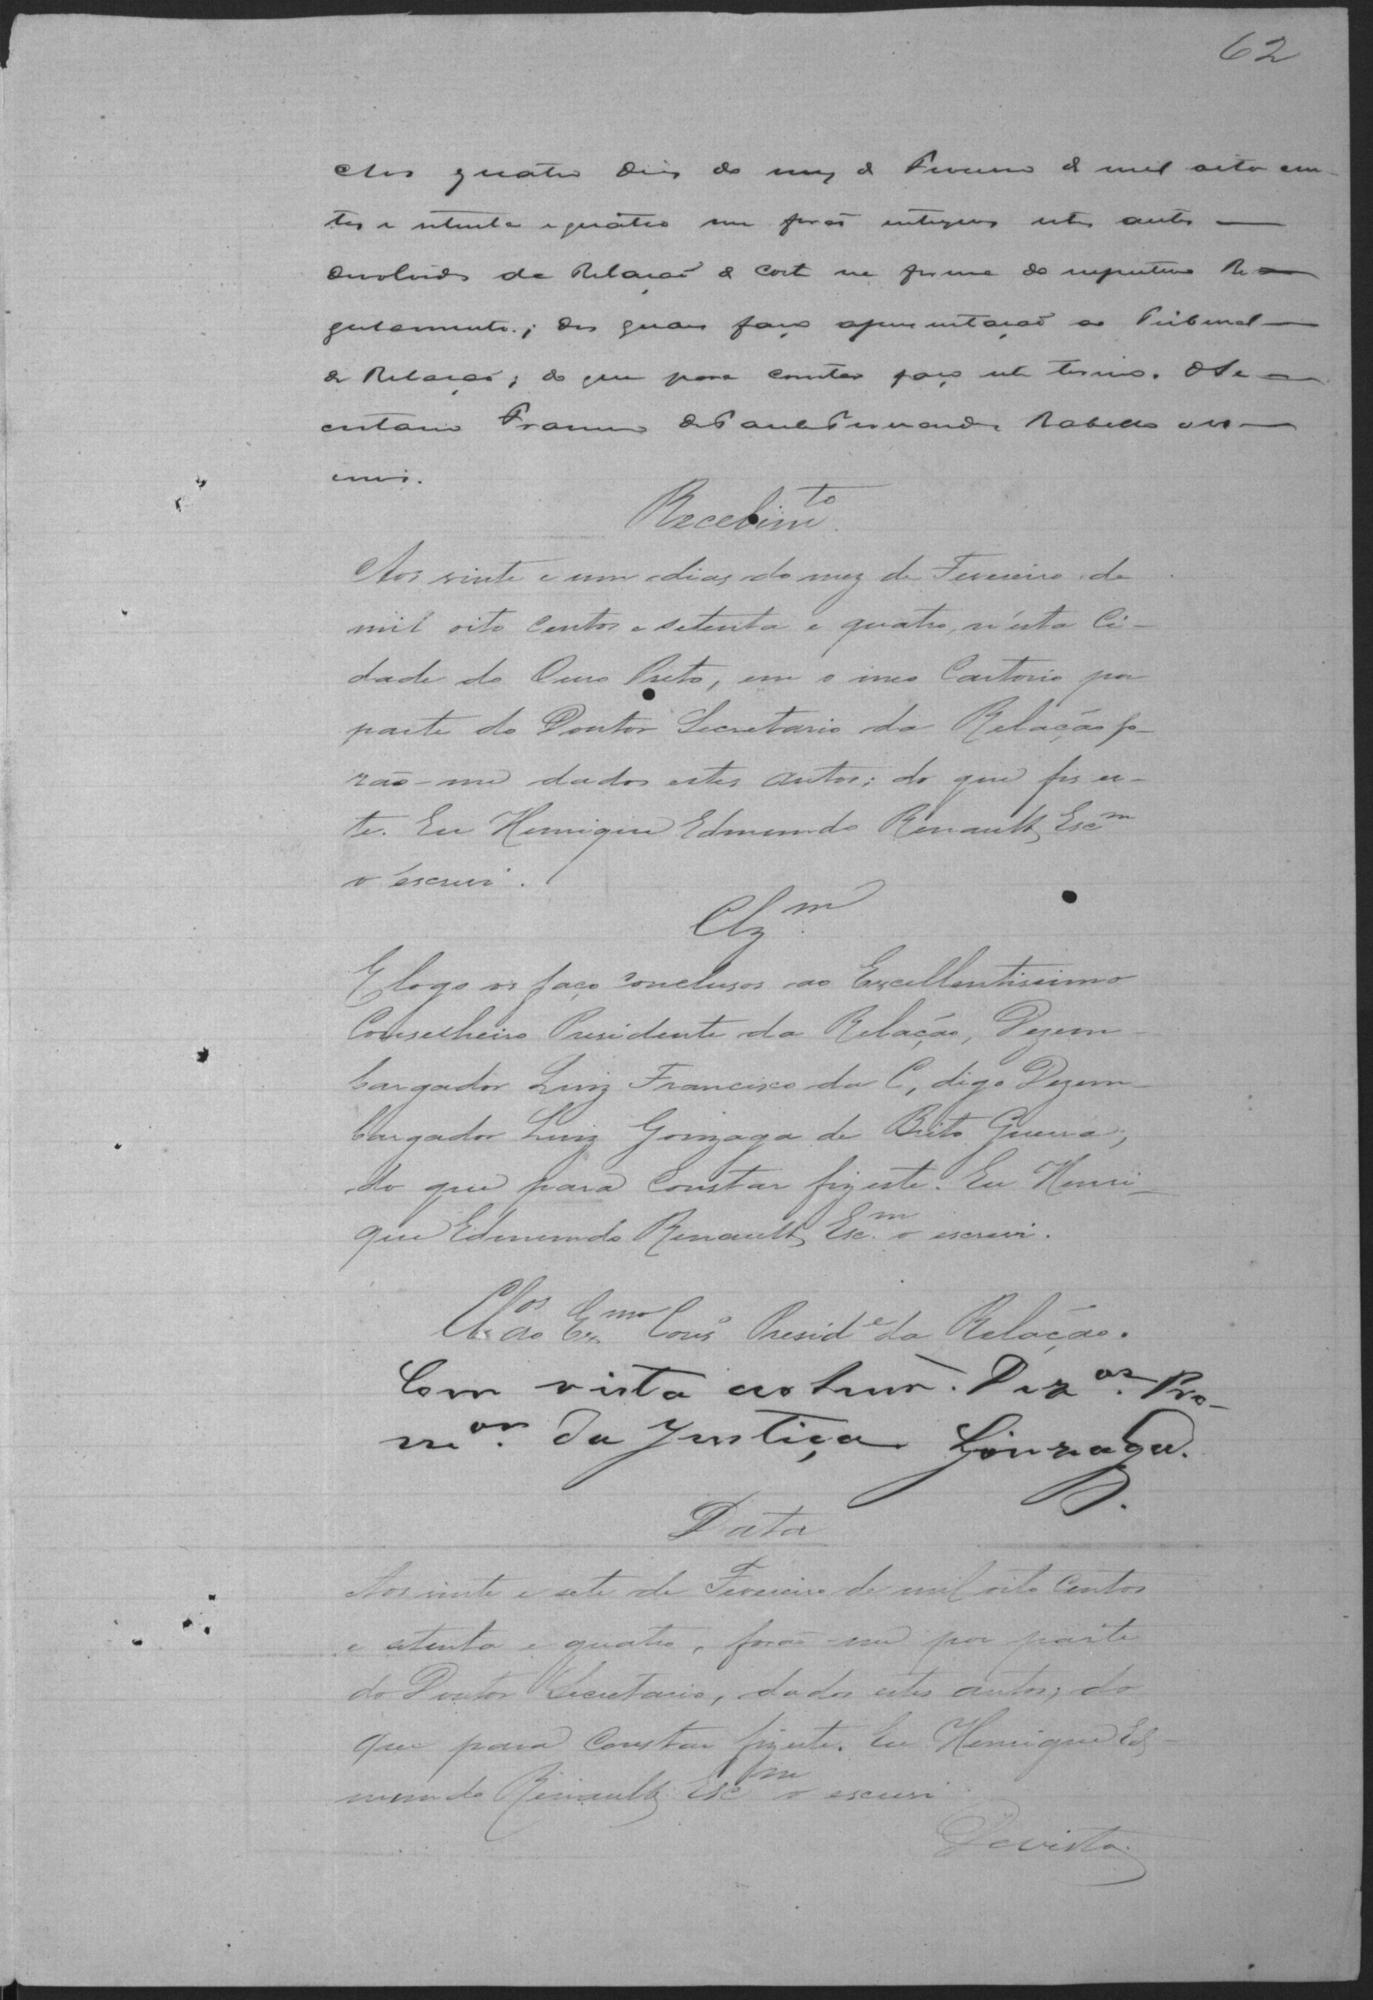 62
Aos quatro dias do mez de Fevereiro de mil oito cen-
tos e setenta e quatro me forão entregues estes autos
devolvidos da Relação da Corte na forma do respectivo Re-
gulamento; dos quaes faço apresentação ao Tribunal
da Relação; do que para constar faço este termo. O Se-
cretario Francisco de Paula Fernandes Rabello o es-
crevi.
Recebim.to
Aos vinte e um dias do mez de Fevereiro de
mil oito centos e setenta e quatro, n'esta Ci-
dade do Ouro Preto, em o meo Cartorio por
parte do Doutor Secretario da Relação fo-
rão-me dados estes autos; do que fiz es-
te. Eu Henrique Edmundo Renault, Esc.m
o escrevi.
Clz.m
E logo os faço conclusos ao Excellentissimo
Conselheiro Presidente da Relação, Dezem-
bargador Luiz Francisco da C, digo Dezem-
bargador Luiz Gonzaga de Brito Guerra;
do que para constar fiz este. Eu Henri-
que Edmundo Renault, Esc.m o escrevi.
Cl.os ao Ex.mo Cons.o Presid.e da Relação.
Com vista ao Snr. Dez.or Pro-
m.or da Justiça Gonzaga.
Data
Aos vinte e sete de Fevereiro de mil oito centos
e setenta e quatro, forão-me por parte
do Doutor Secretario, dados estes autos; do
que para constar fiz este. Eu Henrique Ed-
mundo Renault, Esc.m o escrevi
De vista